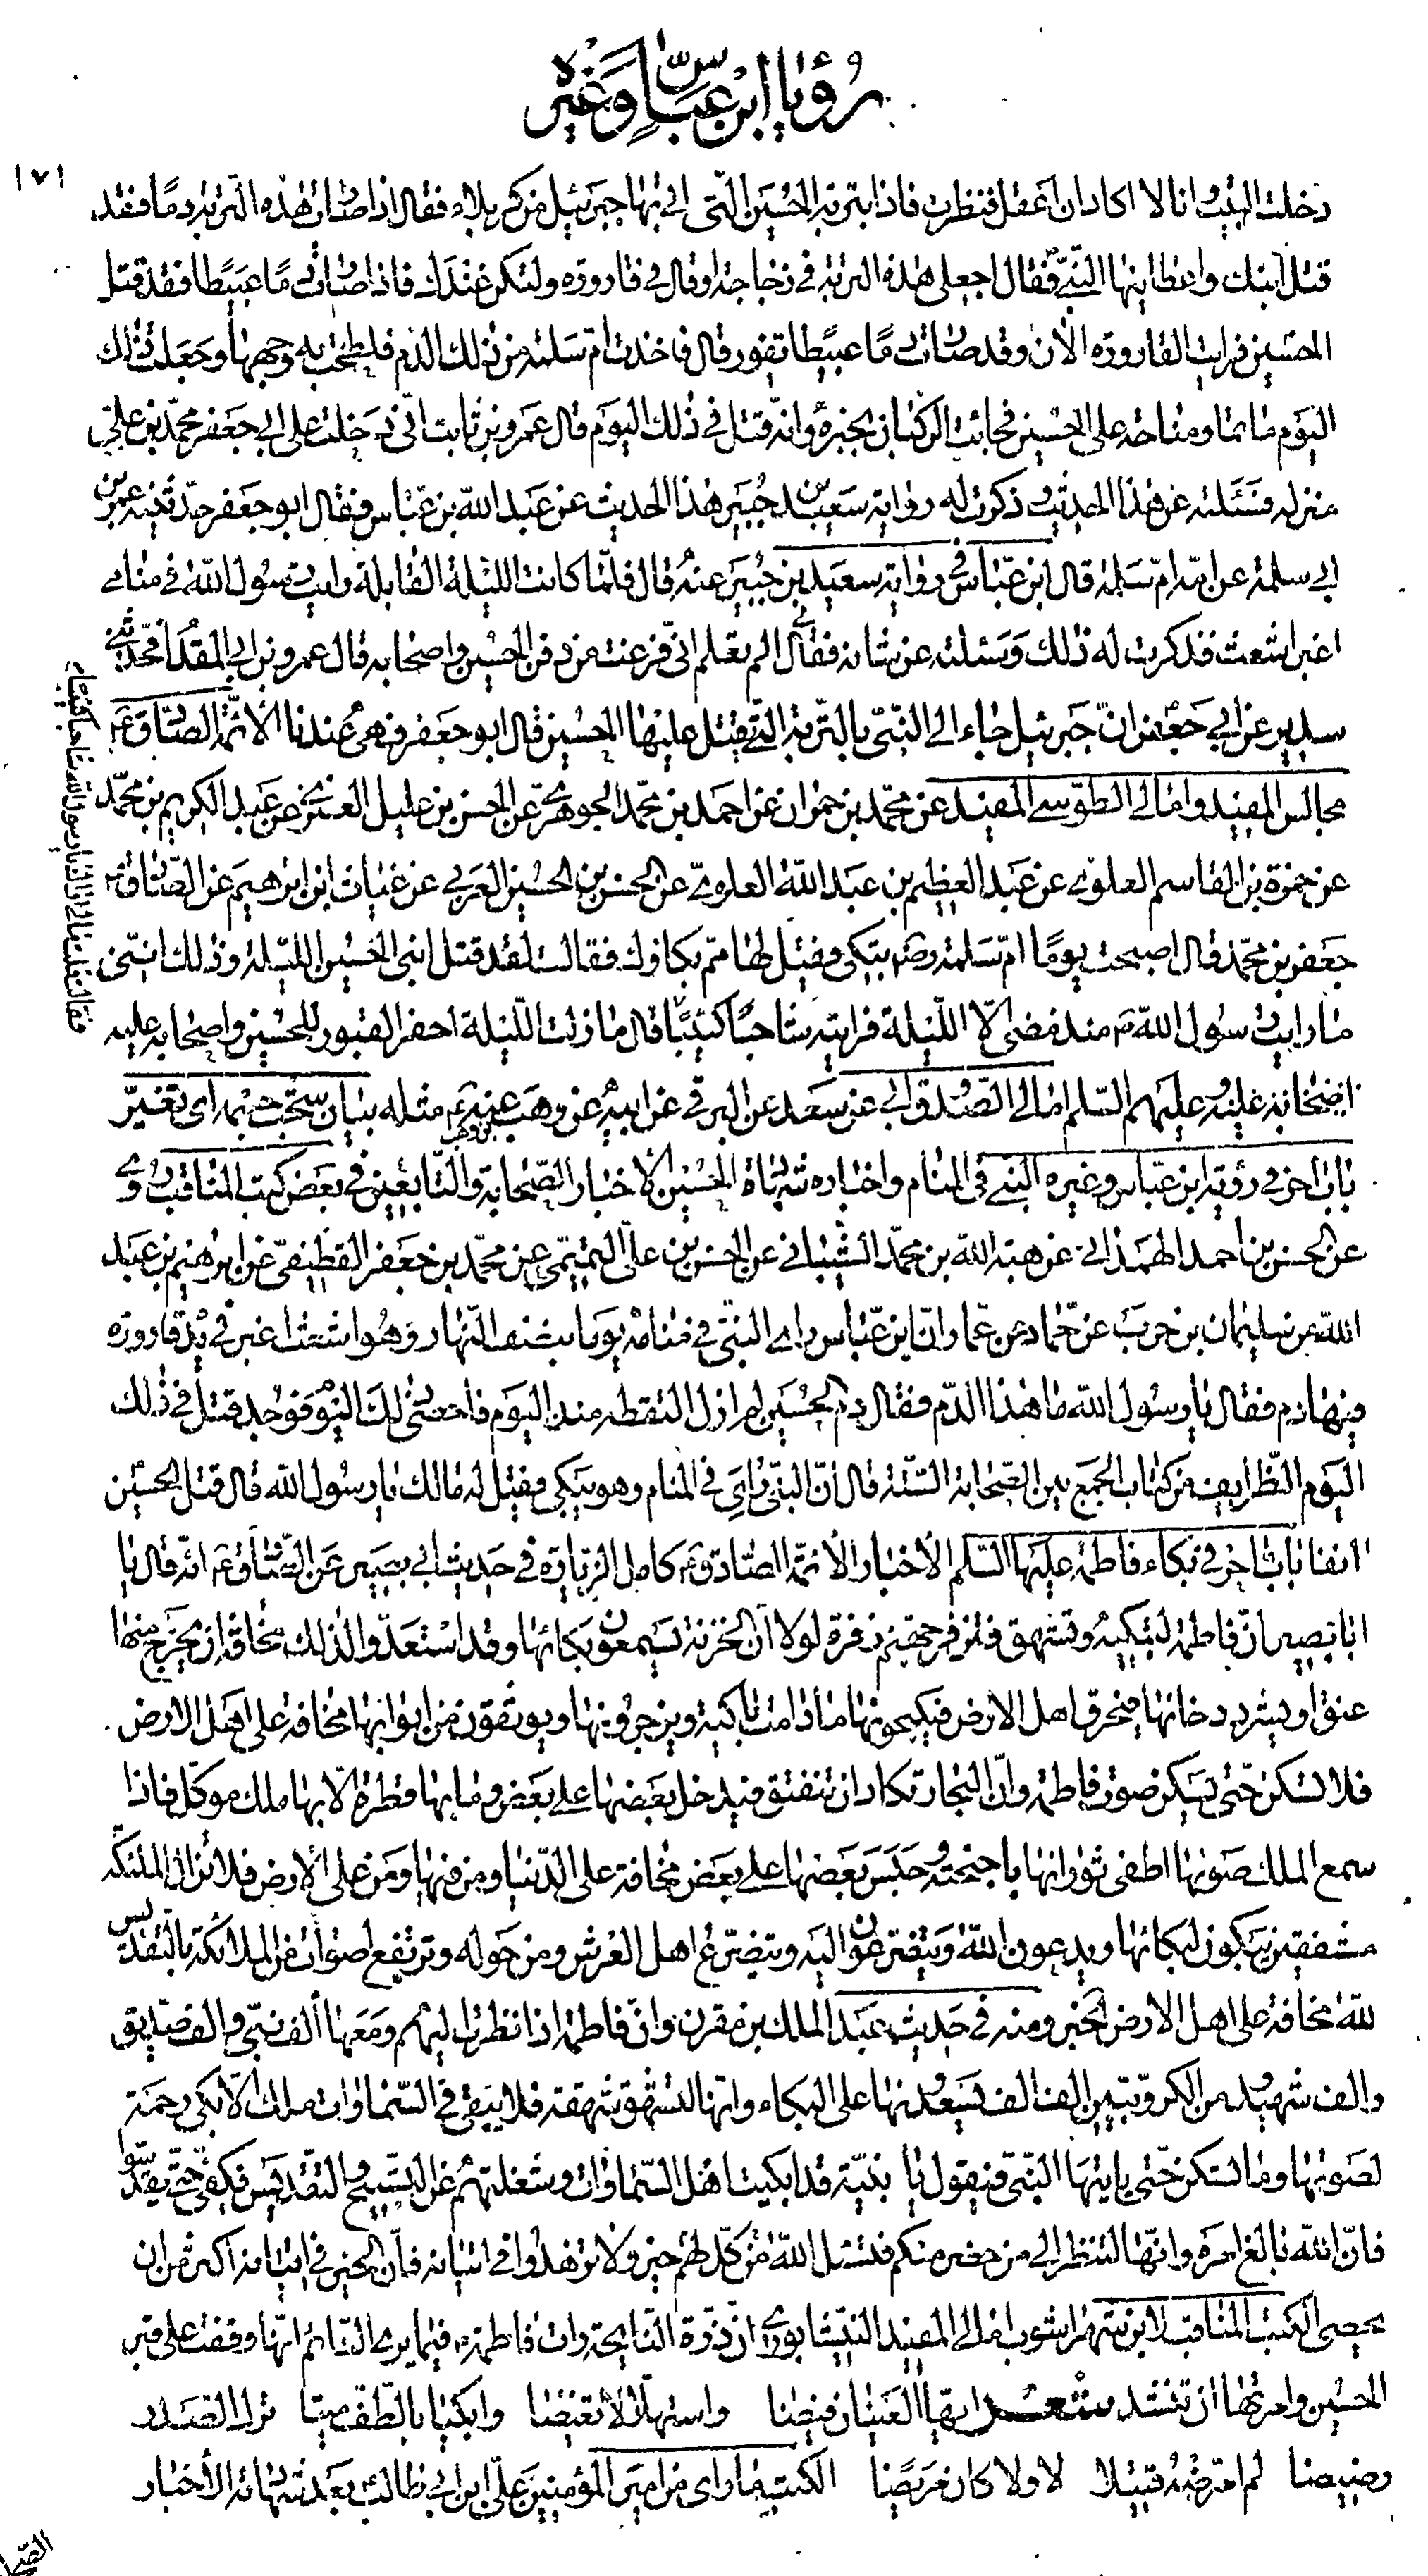 رؤيا ابن عباس وغيره
١٧١
دخلت البيت وانا لا اكاد ان اعقل فنظرت فاذا بتربة الحسين التى اتى بها جبرئيل من كربلاء فقال اذا صارت هذه التربة دما فقد
قتل ابنك واعطانيها النبي فقال اجعلى هذه التربة في زجاجة او قال في قارورة ولتكن عندك فاذا صارت دما عبيطا فقد قتل
الحسين فرايت القارورة الآن وقد صارت دما عبيطا تفور قال فاخذت ام سلمة من ذلك الدم فلطخت به وجهها وجعلت ذلك
اليوم ماتما ومناحة على الحسين فجائت الركبان بخبره وانه قتل في ذلك اليوم قال عمرو بن ثابت انى دخلت على ابي جعفر محمد بن على
منزله فسئلته عن هذا الحديث وذكرت له رواية سعيد بن جبير هذا الحديث عن عبد الله بن عباس فقال ابو جعفر حدثنيه عمر بن
ابي سلمة عن امه ام سلمة قال ابن عباس في رواية سعيد بن جبير عنه قال فلما كانت الليلة القابلة رايت رسول الله في منامى
اغبر اشعث فذكرت له ذلك وسئلته عن شانه فقال الم تعلم انى فرغت من دفن الحسين واصحابه قال عمرو بن ابي المقدام فحدثنى
سدير عن ابي جعفر ان جبرئيل جاء الى النبي بالتربة التي يقتل عليها الحسين قال ابو جعفر فهى عندنا الائمة الصادق ع
مجالس المفيد وامالى الطوسى المفيد عن محمد بن عمران عن احمد بن محمد الجوهرى عن الحسن بن عليل العنزى عن عبد الكريم بن محمد
عن حمزة بن القاسم العلوى عن عبد العظيم بن عبد الله العلوى عن الحسن بن الحسين العربى عن غياث ابن ابرهيم عن الصادق
جعفر بن محمد قال اصبحت يوما ام سلمة رض تبكى فقيل لها مم بكاؤك فقالت لقد قتل ابنى الحسين الليلة وذلك اننى
ما رايت رسول الله ص منذ مضى الا الليلة فرايته شاحبا كئيبا قال ما زلت الليلة احفر القبور للحسين واصحابه عليه
اصحابه عليه وعليهم السلم امالى الصدوق ابي عن سعد عن البرقى عن ابيه عن وهب عنه ع مثله بيان شحب جسمه اى تغير
باب اخر في رؤية ابن عباس وغيره النبي في المنام واخباره بشهادة الحسين الاخبار الصحابة والتابعين في بعض كتب المناقب روى
عن الحسن بن احمد الهمدانى عن هبة الله بن محمد الشيبانى عن الحسن بن على التميمى عن محمد بن جعفر القطيفى عن ابرهيم بن عبد
الله عن سليمان بن حرب عن حماد عن عمار ان ابن عباس راى النبي في منامه يوما بنصف النهار وهو اشعث اغبر في يده قارورة
فيها دم فقال يا رسول الله ما هذا الدم فقال دم الحسين لم ازل التقطه منذ اليوم فاحصى ذلك اليوم فوجد قتل في ذلك
اليوم الطرايف من كتاب الجمع بين الصحاح الستة قال ان النبي راى في المنام وهو يبكى فقيل له مالك يا رسول الله قال قتل الحسين
انفا باب اخر في بكاء فاطمة عليها السلم الاخبار الائمة الصادق ع كامل الزيارة في حديث ابي بصير عن الصادق ع انه قال يا
ابا بصير ان فاطمة لتبكيه وتشهق فتزفر جهنم زفرة لولا ان الخزنة يسمعون بكائها وقد استعدوا لذلك مخافة ان يخرج منها
عنق او يشرد دخانها فيحرق اهل الارض فيكبحونها ما دامت باكية ويزجرونها ويوثقون من ابوابها مخافة على اهل الارض
فلا تسكن حتى يسكن صوت فاطمة وان البحار تكاد ان تنفتق فيدخل بعضها على بعض وما بها قطرة الا بها ملك موكل فاذا
سمع الملك صوتها اطفى ثورانها باجنحته وحبس بعضها على بعض مخافة على الدنيا ومن فيها ومن على الارض فلا تزال الملئكة
مشفقين يبكون لبكائها ويدعون الله ويتضرعون اليه ويتضرع اهل العرش ومن حوله وترتفع اصوات من الملائكة بالتقديس
لله مخافة على اهل الارض الخبر ومنه في حديث عبد الملك بن مقرن وان فاطمة اذا نظرت اليهم ومعها الف نبي والف صديق
والف شهيد ومن الكروبيين الف الف يسعدونها على البكاء وانها لتشهق شهقة فلا يبقى في السماوات ملك الا بكى رحمة
لصوتها وما تسكن حتى ياتيها النبي فيقول يا بنية قد ابكيت اهل السماوات وشغلتهم عن التسبيح والتقديس فكفى حتى يقدسوا
فان الله بالغ امره وانها لتنظر الى من حضر منكم فتسئل الله من كل لهم خير ولا تزهدوا في اتيانه فان الخير في اتيانه اكثر من ان
يحصى الكتب المناقب لابن شهر اشوب امالى المفيد النيشابورى ان ذرة النايحة رات فاطمة فيما يرى النائم انها وقفت على قبر
الحسين وامرتها ان تنشد شعر ايها العينان فيضا واستهلا لا تغيضا وابكيا بالطف ميتا ترك الصدر
رضيضا لم امرضه قتيلا لا ولا كان مريضا الكتب فيما راى من امير المؤمنين على ابن ابي طالب بعد شهادته الاخبار
فقالت فقلت مالى اراك يا رسول الله شاحبا كئيبا